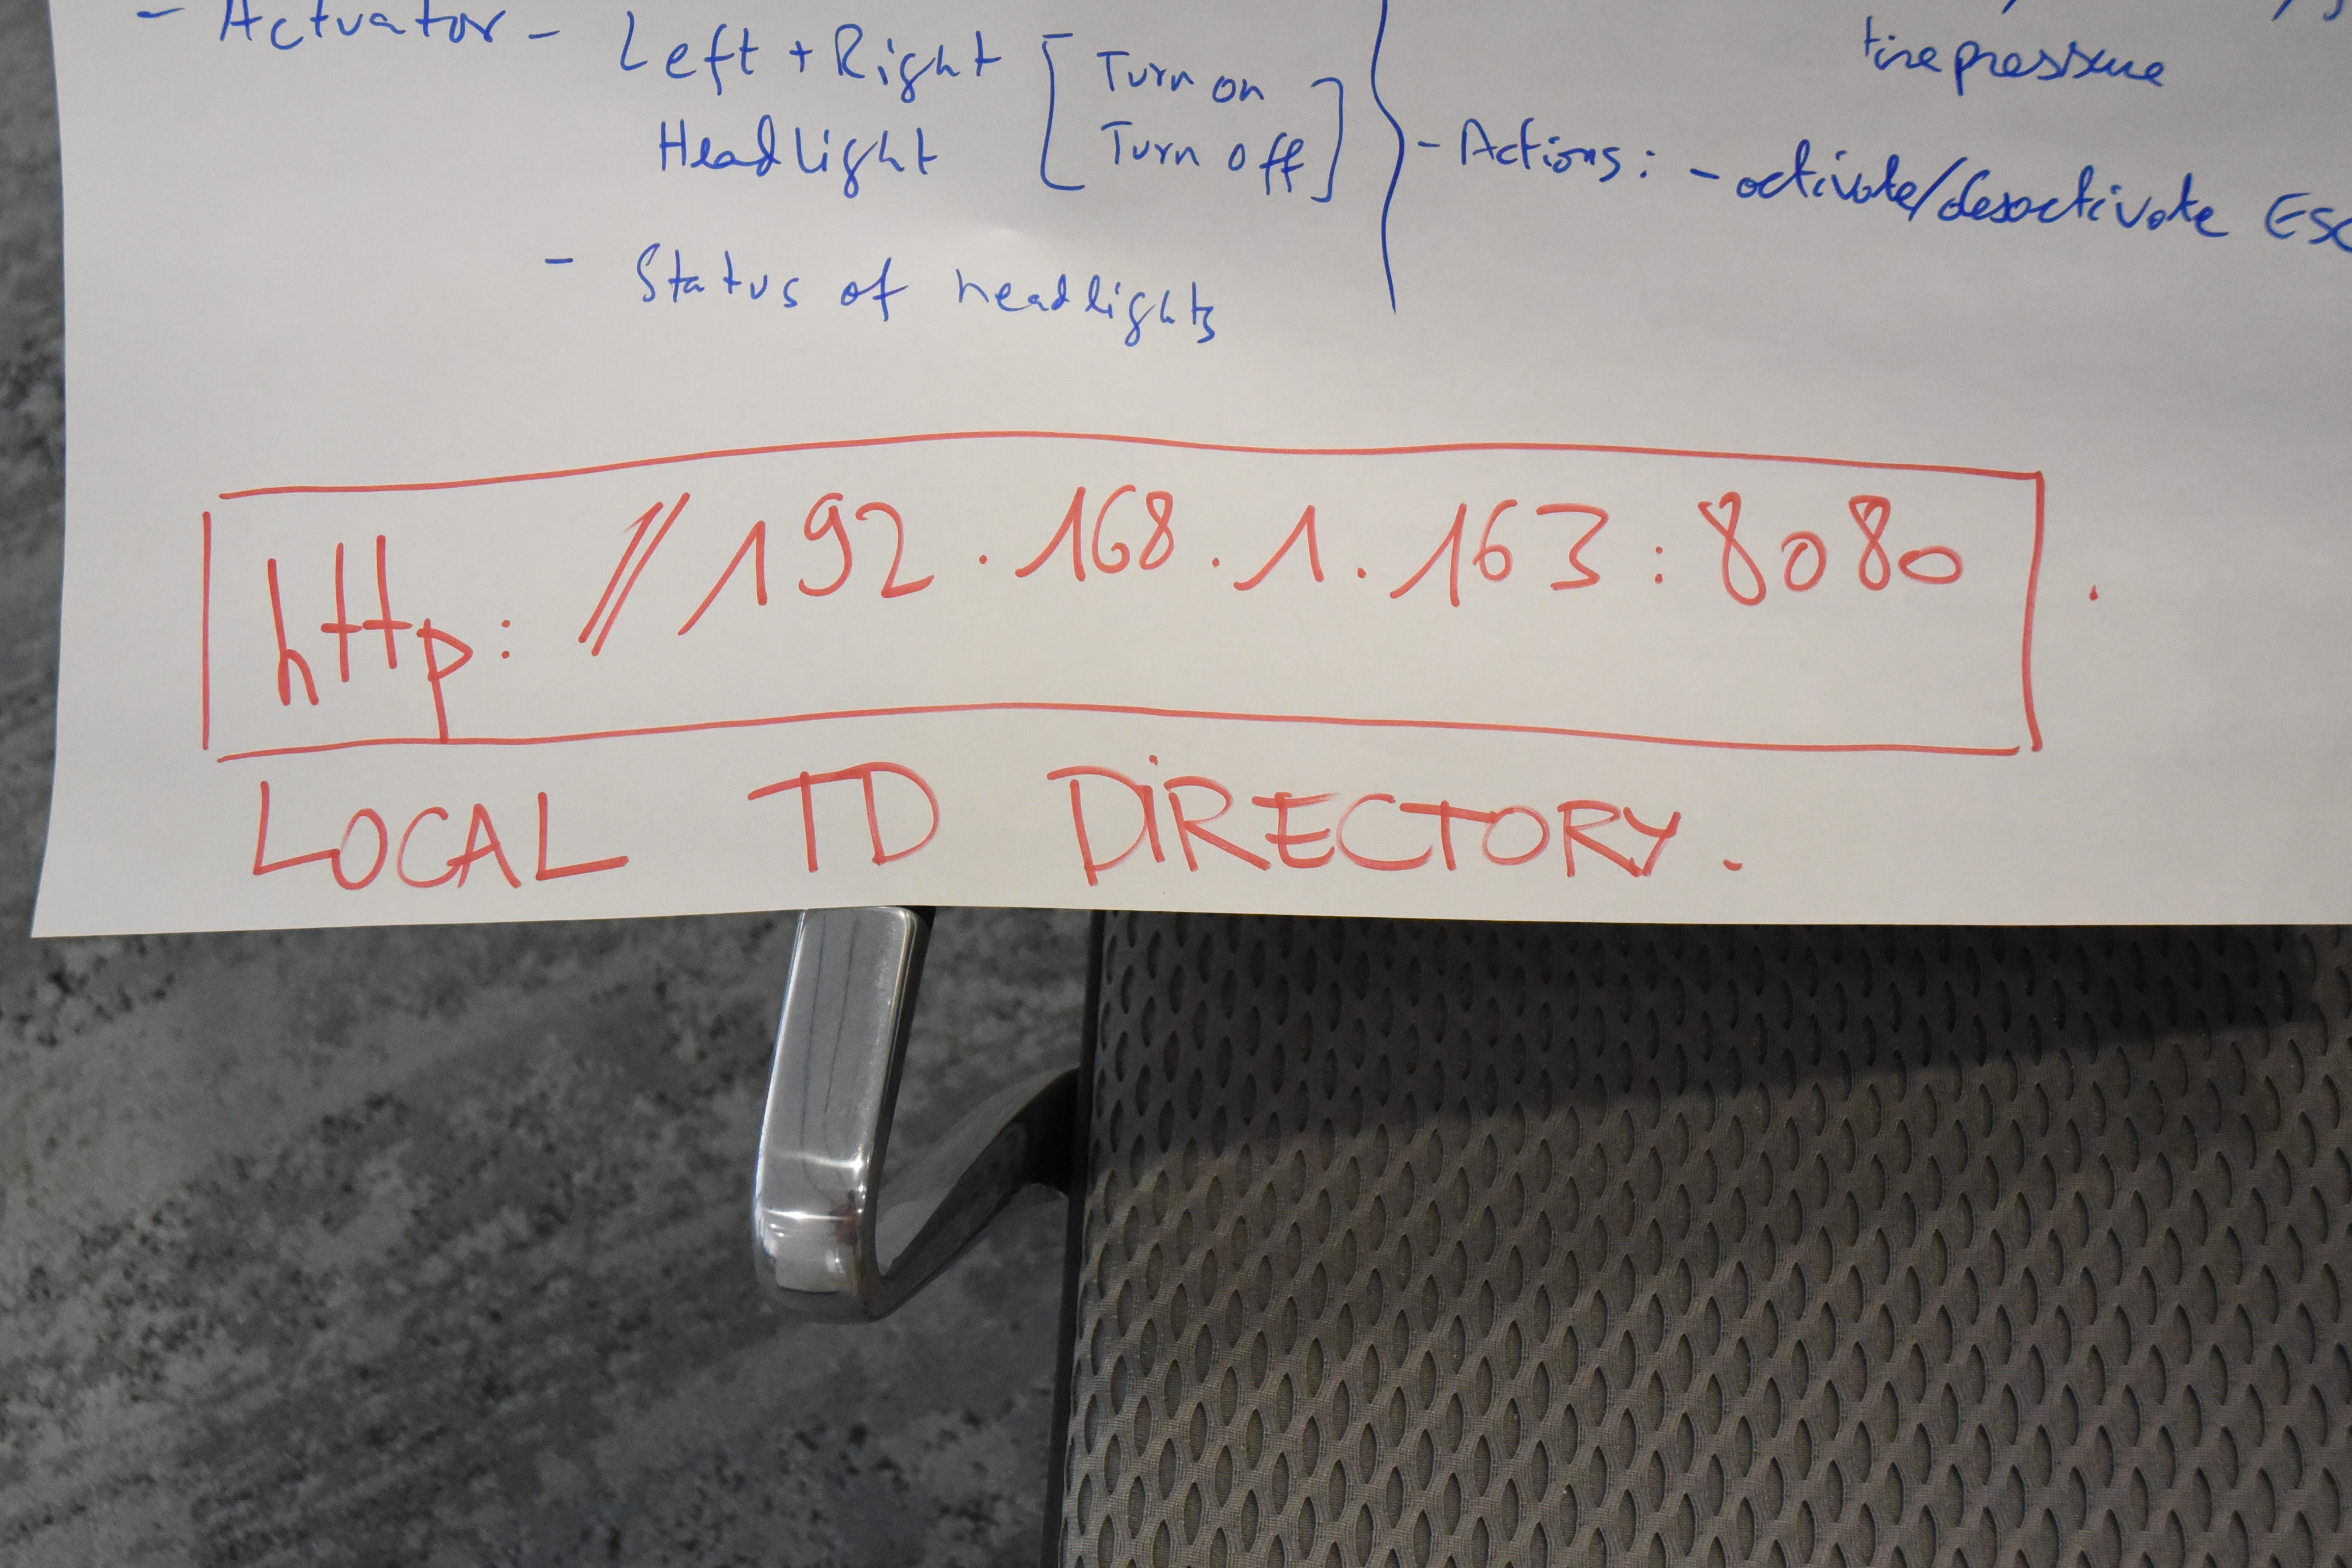 - Actuator - Left + Right [Turn on
Headlight Turn off]
- Status of headlights
tire pressure
- Actions: - activate/desactivate
http://192.168.1.163:8080
LOCAL TD DIRECTORY.